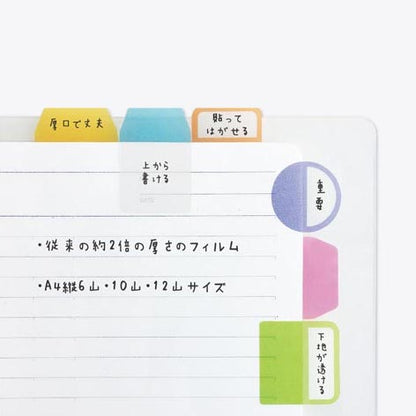 厚口で丈夫
貼って
はがせる
上から
書ける
重要
・従来の約2倍の厚さのフィルム
・A4縦6山・10山・12山サイズ
下地が透ける